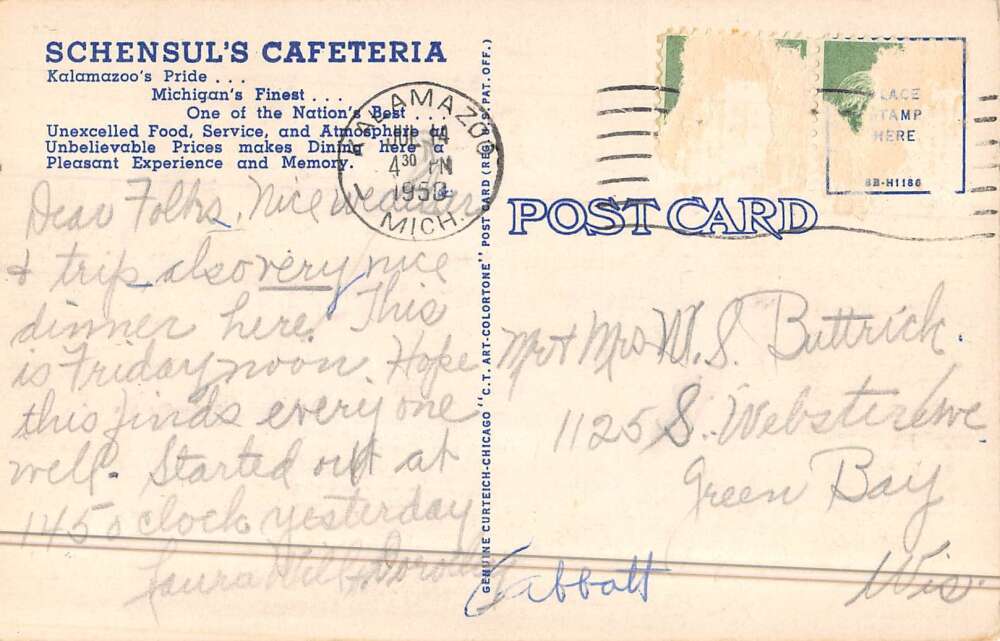 SCHENSUL'S CAFETERIA
Kalamazoo's Pride . . .
Michigan's Finest . . .
One of the Nation's Best . . .
Unexcelled Food, Service, and Atmosphere at
Unbelievable Prices makes Dining here a
Pleasant Experience and Memory.
KALAMAZOO
JUL 14
4 30 PM
1950
MICH.
PLACE
STAMP
HERE
8B-H1186
POST CARD
GENUINE CURTEICH-CHICAGO "C.T. ART-COLORTONE" POST CARD (REG. U.S. PAT. OFF.)
Dear Folks, Nice weather
& trip also very nice
dinner here. This
is Friday noon. Hope
this finds everyone
well. Started out at
145 o clock yesterday
Laura Will & Dorothy
Mr & Mrs W. S. Buttrick
1125 S. Webster Ave
Green Bay
Wis.
abbott